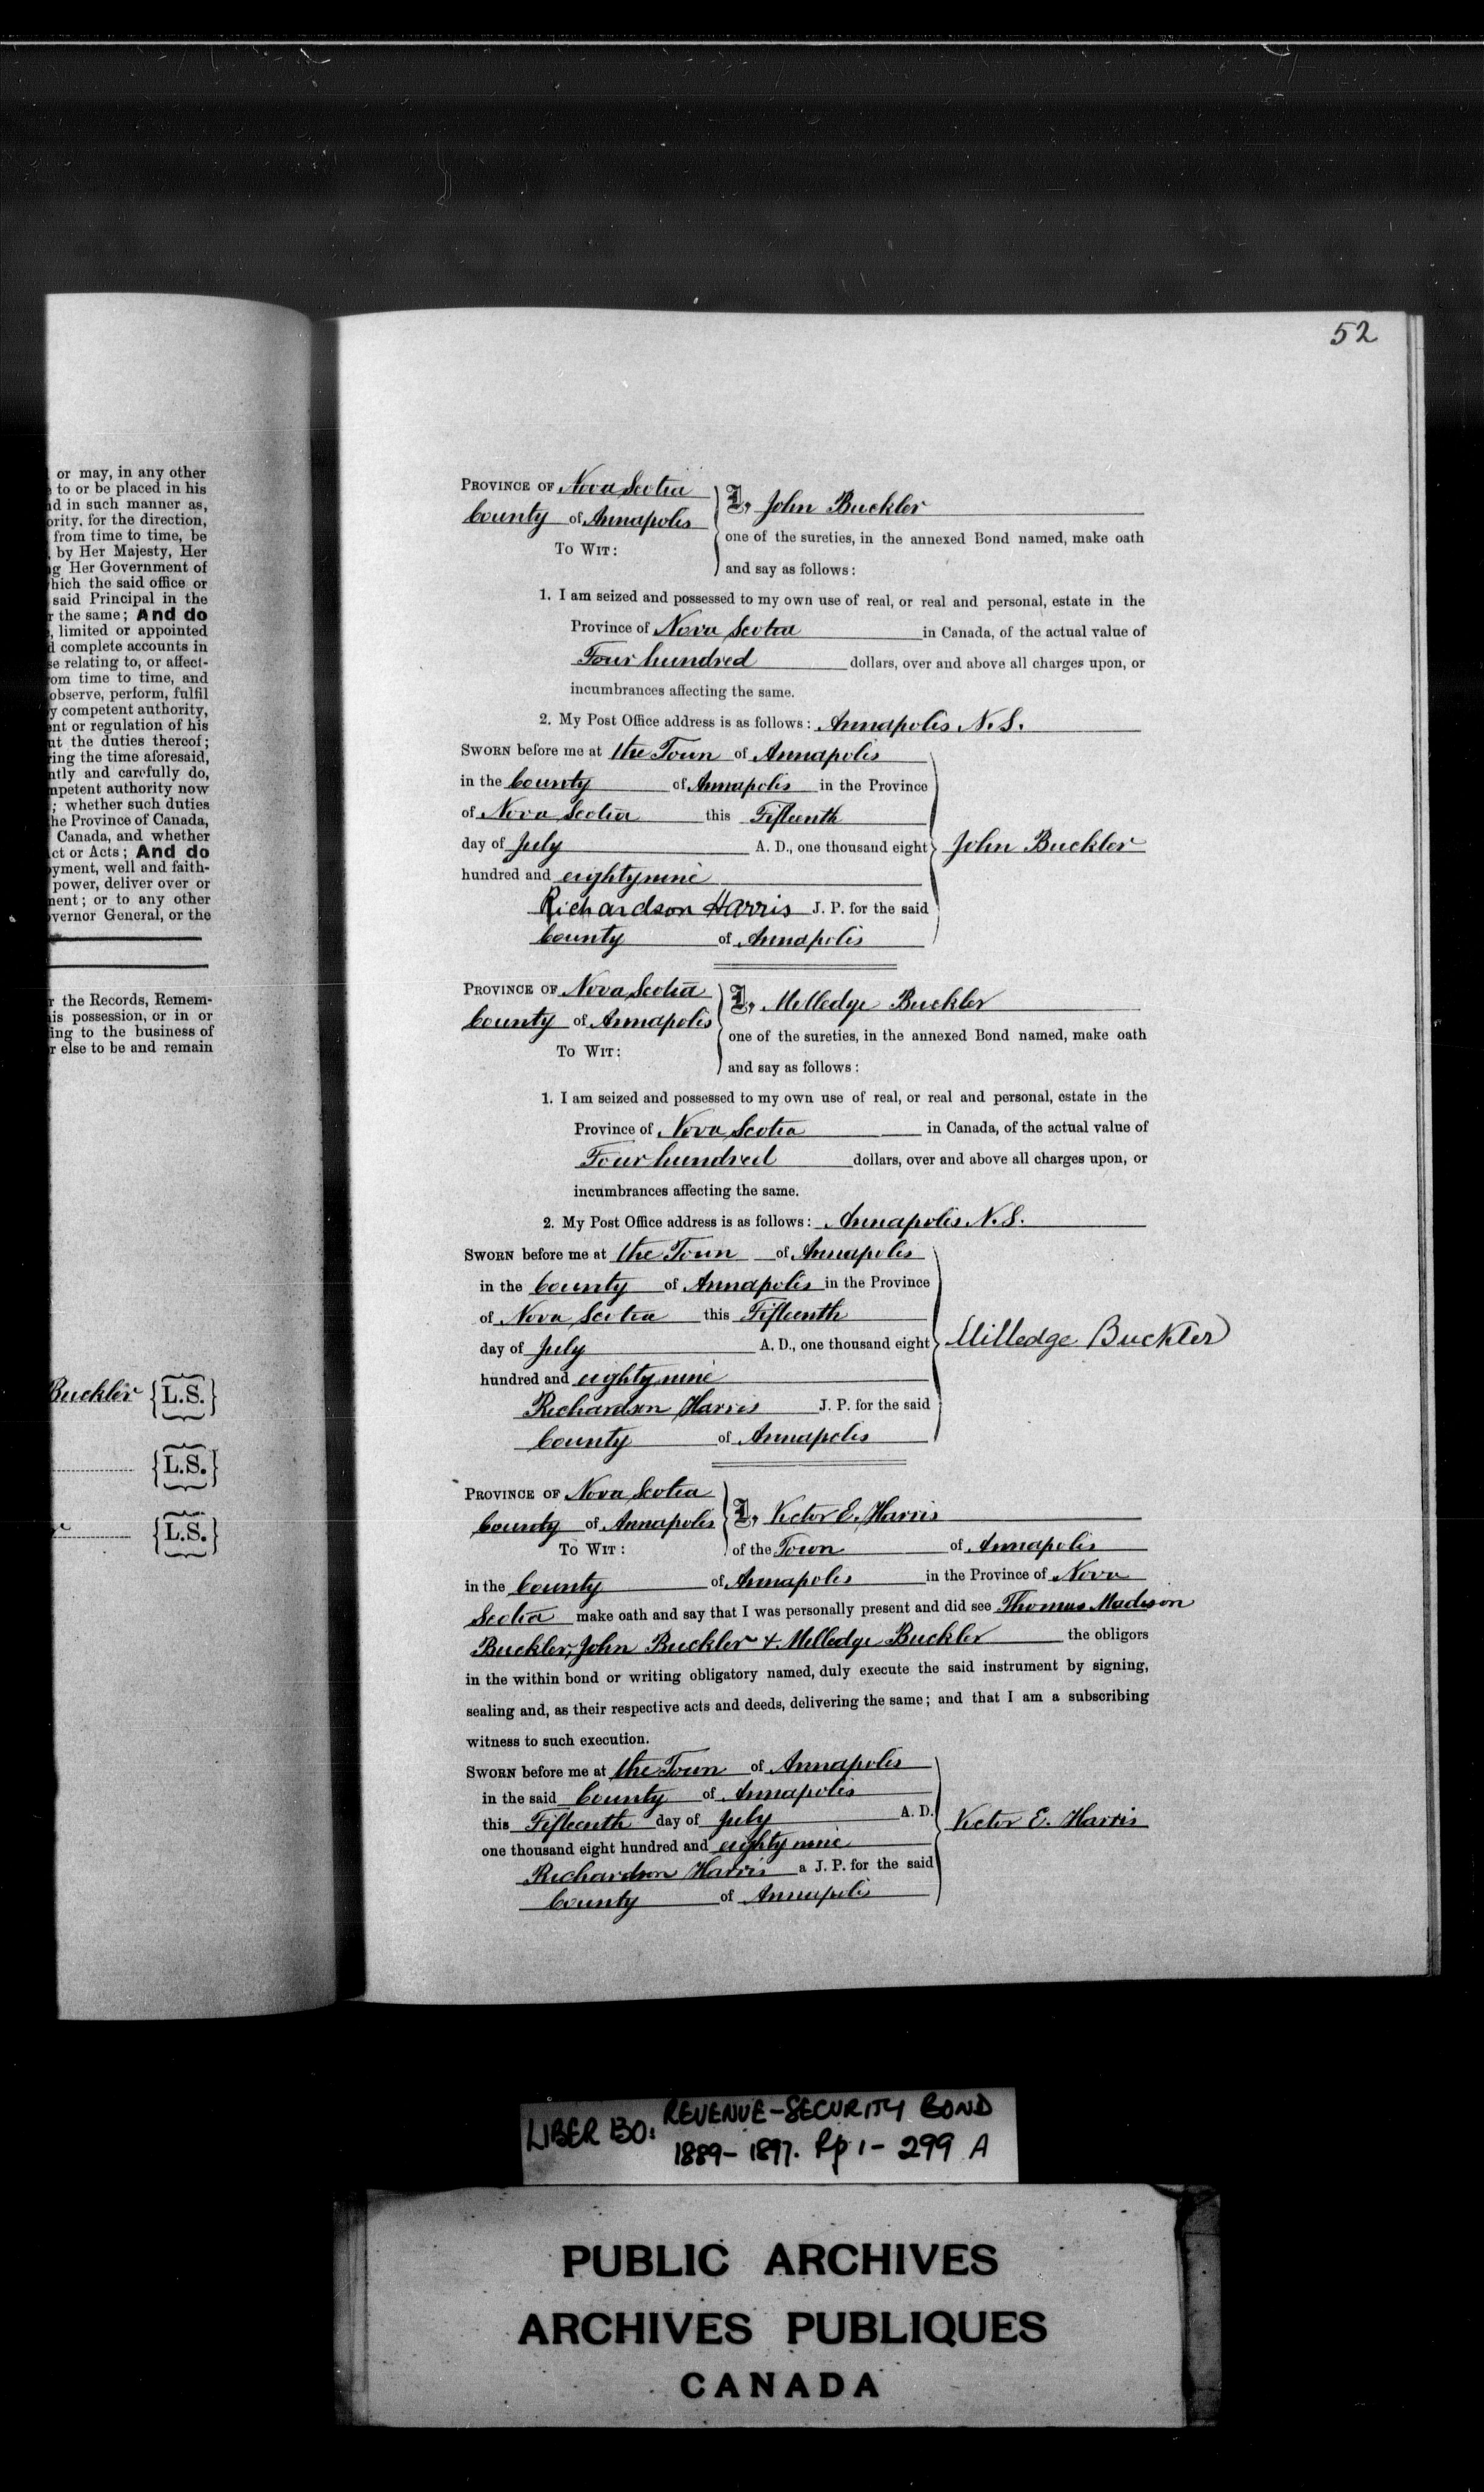 or may, in any other
to or be placed in his
d in such manner as,
ority, for the direction,
from time to time, be
by Her Majesty, Her
g Her Government of
hich the said office or
said Principal in the
r the same; And do
, limited or appointed
d complete accounts in
se relating to, or affect-
om time to time, and
observe, perform, fulfil
y competent authority,
ent or regulation of his
ut the duties thereof;
ring the time aforesaid,
ntly and carefully do,
mpetent authority now
; whether such duties
he Province of Canada,
Canada, and whether
ct or Acts; And do
oyment, well and faith-
power, deliver over or
nent; or to any other
vernor General, or the
r the Records, Remem-
is possession, or in or
ing to the business of
r else to be and remain
Buckler {L.S.}
{L.S.}
{L.S.}
52
PROVINCE OF Nova Scotia
County of Annapolis
TO WIT:
I, John Buckler
one of the sureties, in the annexed Bond named, make oath
and say as follows:
1. I am seized and possessed to my own use of real, or real and personal, estate in the
Province of Nova Scotia in Canada, of the actual value of
Four hundred dollars, over and above all charges upon, or
incumbrances affecting the same.
2. My Post Office address is as follows: Annapolis N.S.
SWORN before me at the Town of Annapolis
in the County of Annapolis in the Province
of Nova Scotia this Fifteenth
day of July A. D., one thousand eight
hundred and eighty nine
John Buckler
Richardson Harris J. P. for the said
County of Annapolis
PROVINCE OF Nova Scotia
County of Annapolis
TO WIT:
I, Milledge Buckler
one of the sureties, in the annexed Bond named, make oath
and say as follows:
1. I am seized and possessed to my own use of real, or real and personal, estate in the
Province of Nova Scotia in Canada, of the actual value of
Four hundred dollars, over and above all charges upon, or
incumbrances affecting the same.
2. My Post Office address is as follows: Annapolis N.S.
SWORN before me at the Town of Annapolis
in the County of Annapolis in the Province
of Nova Scotia this Fifteenth
day of July A. D., one thousand eight
hundred and eighty nine
Milledge Buckler
Richardson Harris J. P. for the said
County of Annapolis
PROVINCE OF Nova Scotia
County of Annapolis
TO WIT:
I, Victor E. Harris
of the Town of Annapolis
in the County of Annapolis in the Province of Nova
Scotia make oath and say that I was personally present and did see Thomas Madison
Buckler, John Buckler & Milledge Buckler the obligors
in the within bond or writing obligatory named, duly execute the said instrument by signing,
sealing and, as their respective acts and deeds, delivering the same; and that I am a subscribing
witness to such execution.
SWORN before me at the Town of Annapolis
in the said County of Annapolis
this Fifteenth day of July A. D.
one thousand eight hundred and eighty nine
Victor E. Harris
Richardson Harris a J. P. for the said
County of Annapolis
LIBER 130: REVENUE-SECURITY BOND
1889-1897. Pp 1-299 A
PUBLIC ARCHIVES
ARCHIVES PUBLIQUES
CANADA